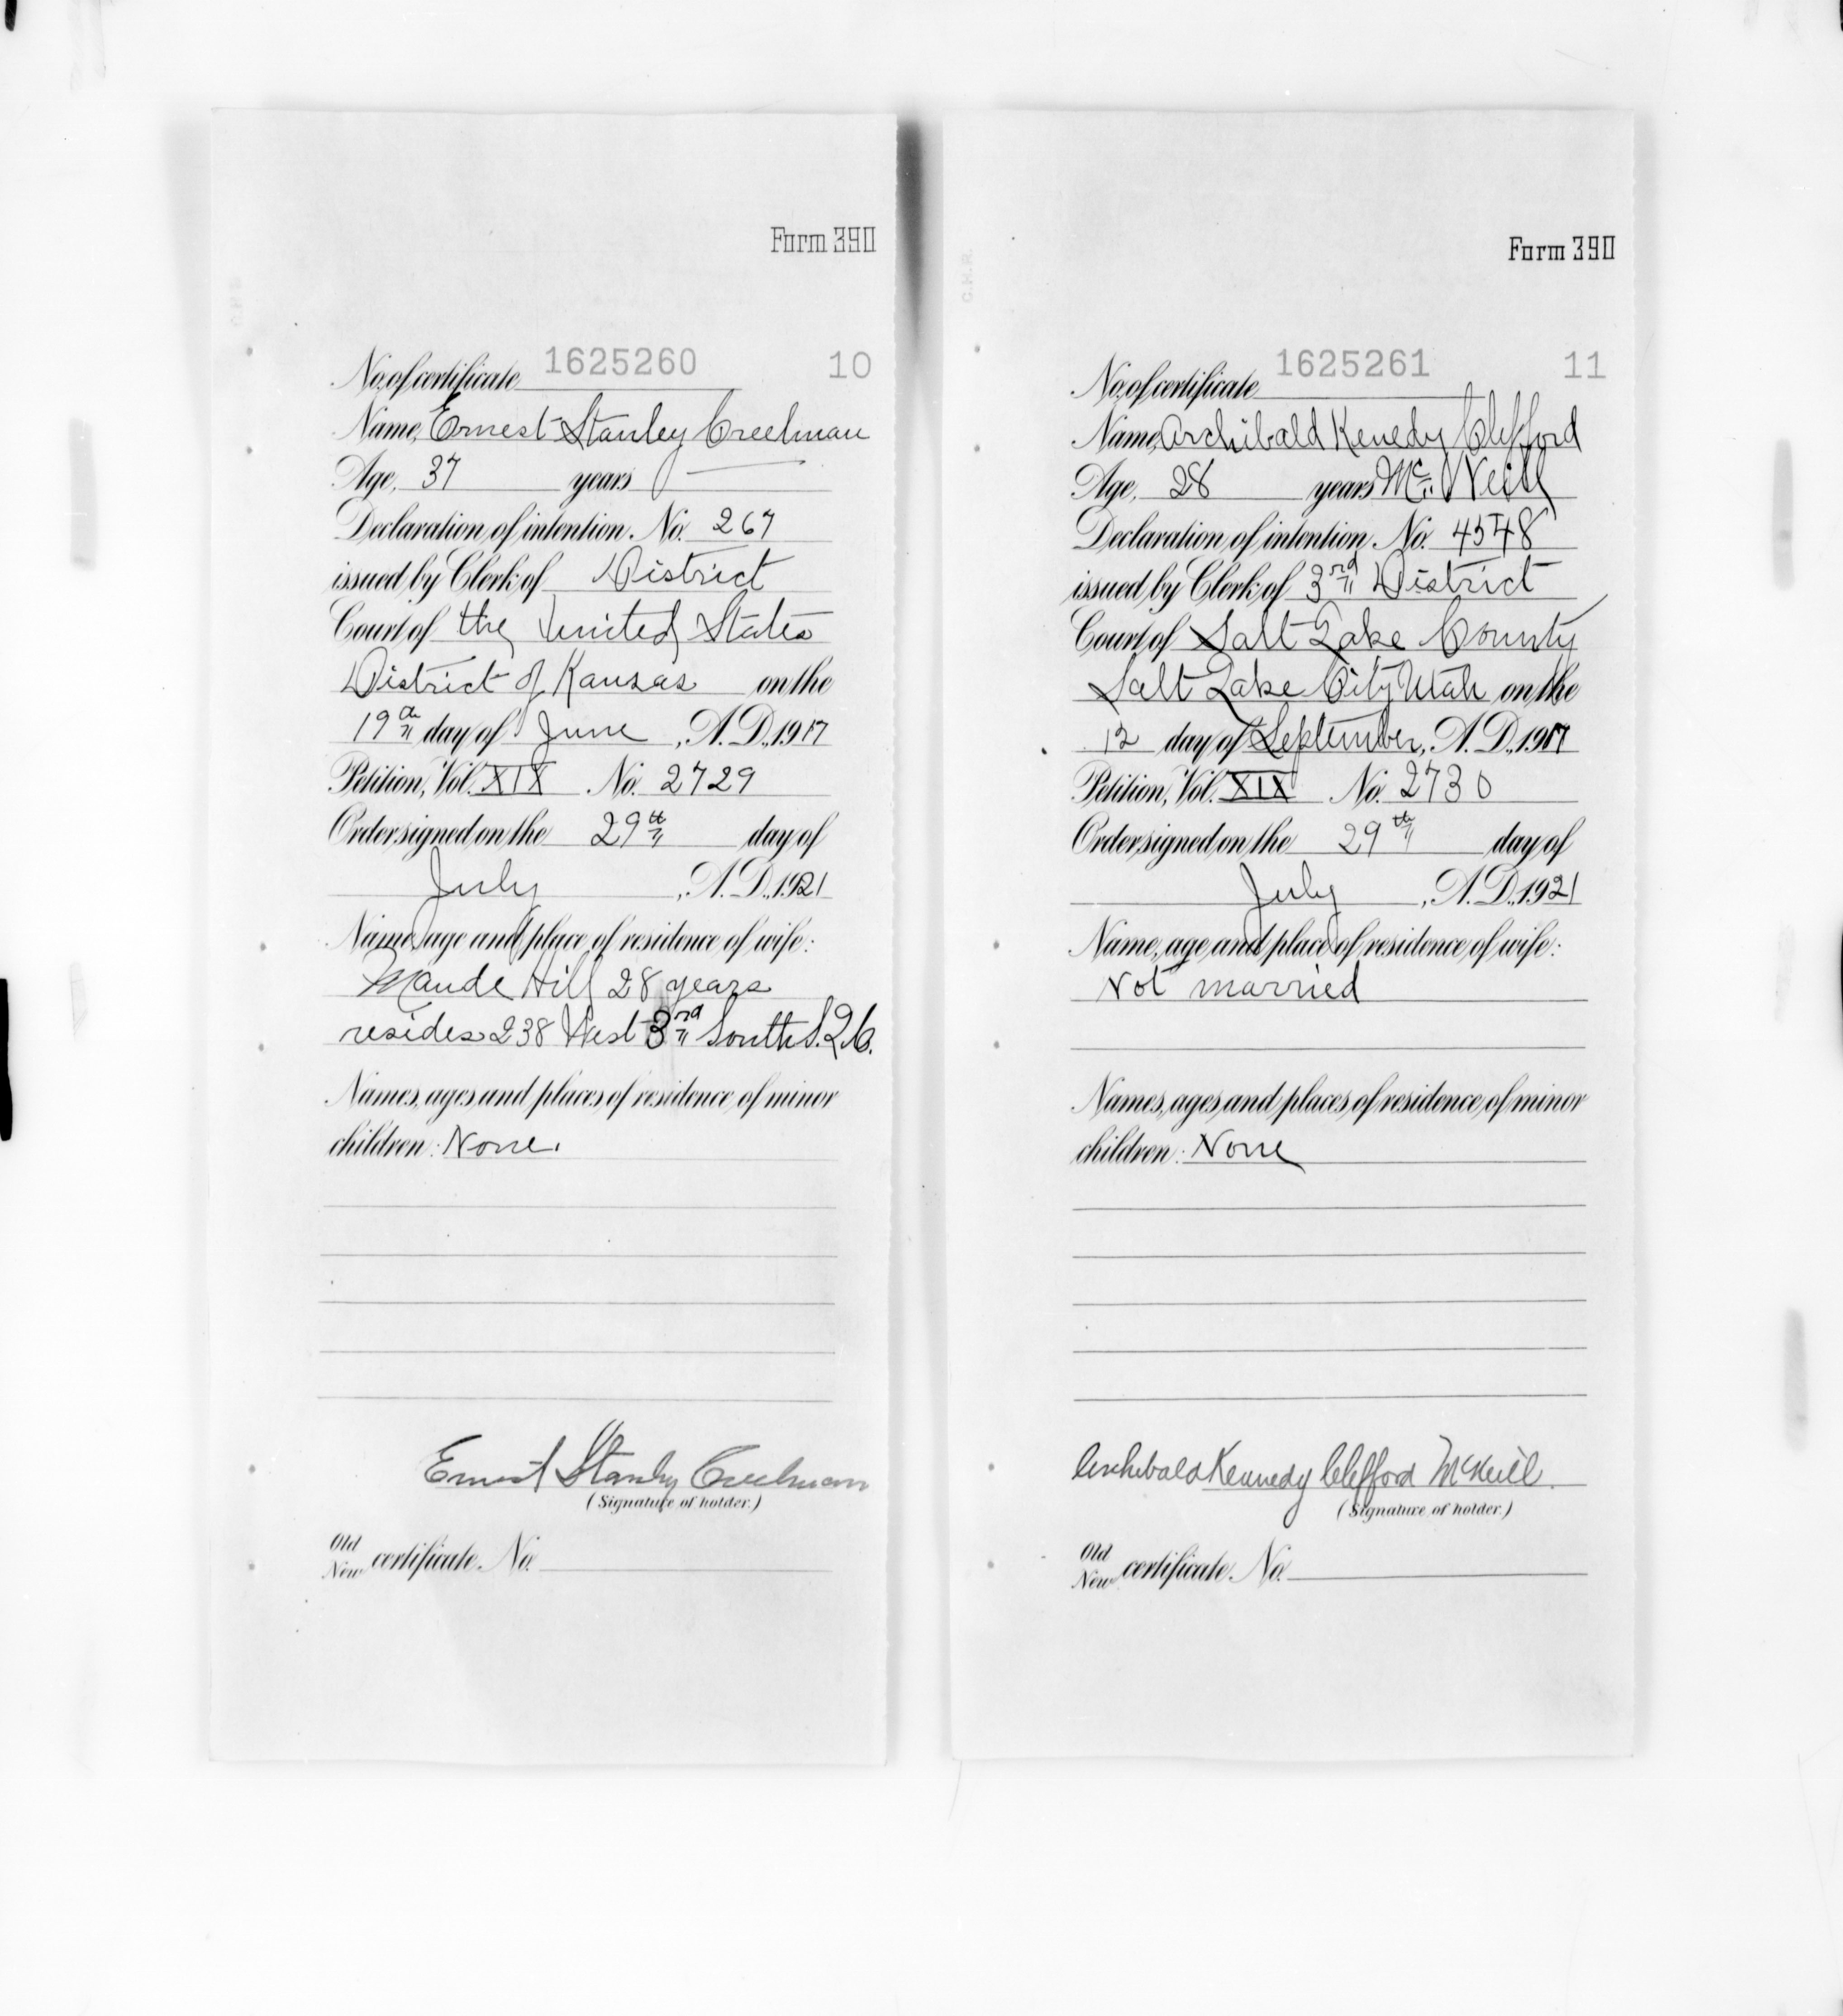 Form 390
No. of certificate 1625260 10
Name, Ernest Stanley Creelman
Age, 37 years
Declaration of intention, No. 267
issued by Clerk of District
Court of the United States
District of Kansas on the
19th day of June, A. D., 1917
Petition, Vol. XIX No. 2729
Order signed on the 29th day of
July, A. D., 1921
Name, age and place of residence of wife:
Maude Hill 28 years
resides 238 West 3rd South S.L.C.
Names, ages and places of residence of minor
children: None.
Ernest Stanley Creelman
(Signature of holder.)
Old
New certificate No.
Form 390
C.H.R.
No. of certificate 1625261 11
Name, Archibald Kenedy Clifford
Age, 28 years Mc Neill
Declaration of intention, No. 4548
issued by Clerk of 3rd District
Court of Salt Lake County
Salt Lake City Utah on the
12 day of September, A. D., 1917
Petition, Vol. XIX No. 2730
Order signed on the 29th day of
July, A. D., 1921
Name, age and place of residence of wife:
Not married
Names, ages and places of residence of minor
children: None
Archibald Kennedy Clifford McNeill.
(Signature of holder.)
Old
New certificate No.